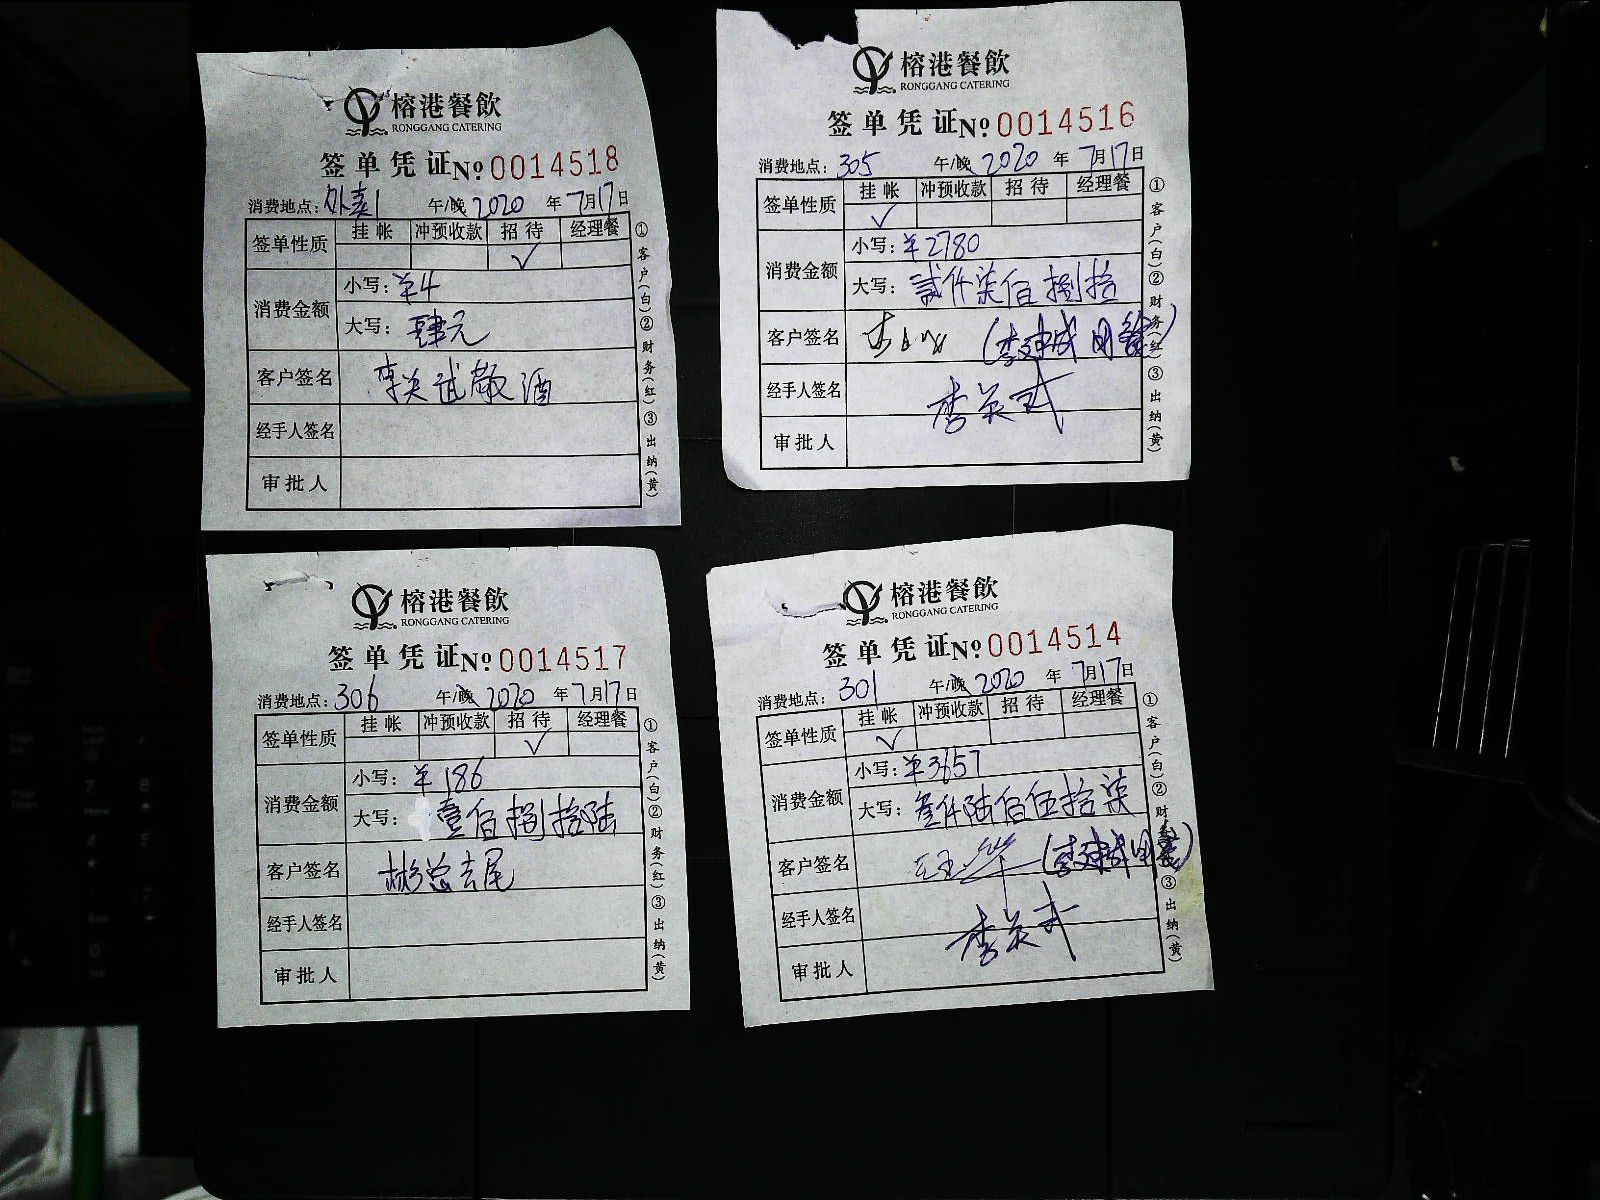 榕港餐飲
RONGGANG CATERING
签单凭证№0014518
消费地点：外卖1 午/晚 2020 年 7月17日
签单性质 挂帐 冲预收款 招待 经理餐
✓
消费金额 小写：¥4
大写：肆元
客户签名 李英武敬酒
经手人签名
审批人
①客户(白)②财务(红)③出纳(黄)
榕港餐飲
RONGGANG CATERING
签单凭证№0014516
消费地点：305 午/晚 2020 年 7月17日
签单性质 挂帐 冲预收款 招待 经理餐
✓
消费金额 小写：¥2780
大写：贰仟柒佰捌拾
客户签名 (李建成用餐)
经手人签名 李英武
审批人
①客户(白)②财务(红)③出纳(黄)
榕港餐飲
RONGGANG CATERING
签单凭证№0014517
消费地点：306 午/晚 2020 年 7月17日
签单性质 挂帐 冲预收款 招待 经理餐
✓
消费金额 小写：¥186
大写：壹佰捌拾陆
客户签名 彬总去尾
经手人签名
审批人
①客户(白)②财务(红)③出纳(黄)
榕港餐飲
RONGGANG CATERING
签单凭证№0014514
消费地点：301 午/晚 2020 年 7月17日
签单性质 挂帐 冲预收款 招待 经理餐
✓
消费金额 小写：¥3657
大写：叁仟陆佰伍拾柒
客户签名 (李建成用餐)
经手人签名 李英武
审批人
①客户(白)②财务(红)③出纳(黄)